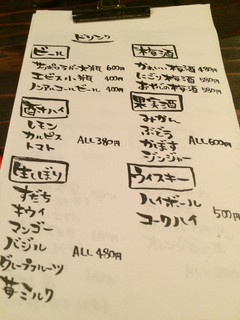 ドリンク
ビール
サッポロラガー大瓶 600円
エビス小瓶 400円
ノンアルコールビール 400円
酎ハイ
レモン
カルピス
トマト
ALL 380円
生しぼり
すだち
キウイ
マンゴー
バジル
グレープフルーツ
苺ミルク
ALL 480円
梅酒
かわいい梅酒 480円
にごり梅酒 580円
梅酒 580円
果実酒
みかん
ぶどう
かぼす
ジンジャー
ALL 600円
ウイスキー
ハイボール
コークハイ
500円